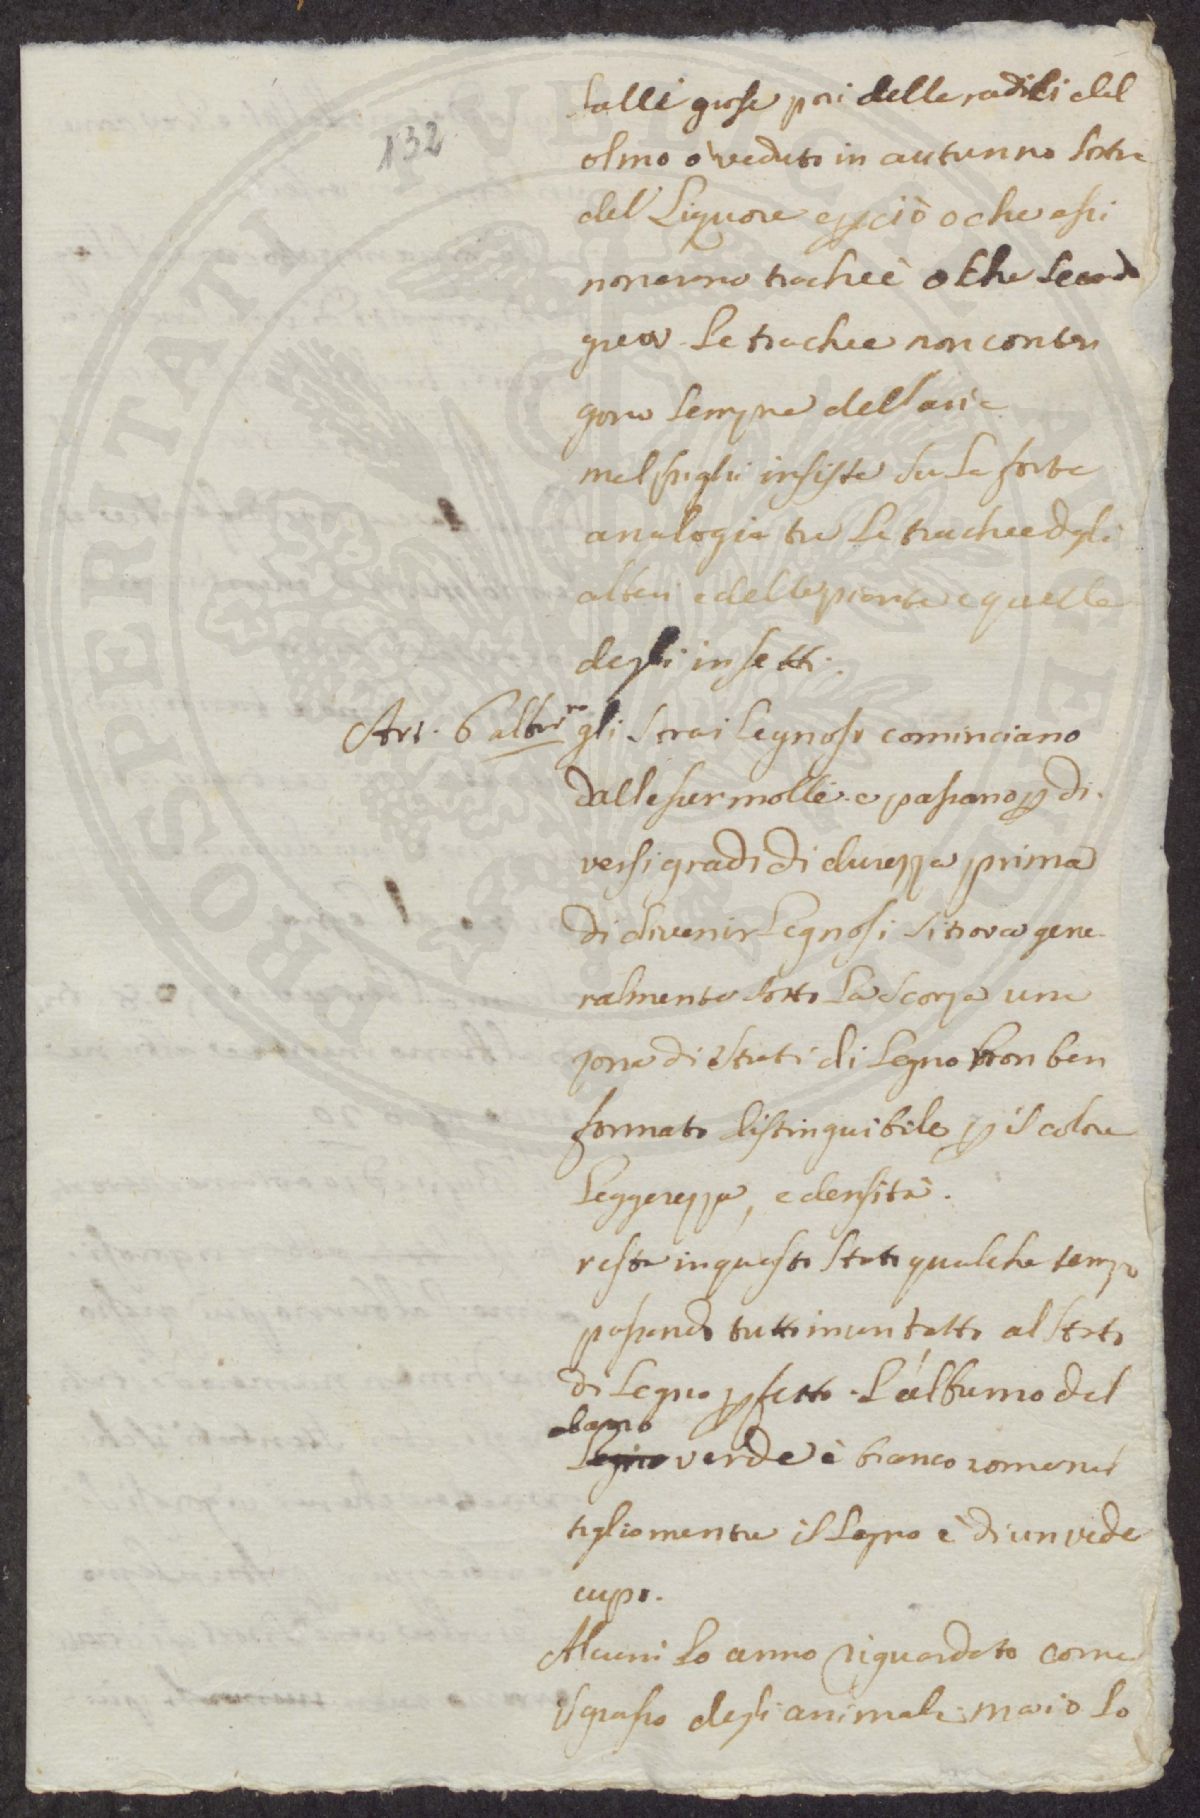 132
dalli grossi pori delle radici del
olmo ò veduto in autunno sortire
del Liquore e p ciò o che essi
non erano trachee o che secondo
greu Le trachee non conten
gono sempre dell'aria
malpighi insiste su La forte
analogia tra Le trachee dgli
alberi e delle piante e quelle
degli insetti.
Art. 6 alburno gli Strati Legnosi cominciano
dall'esser molli e passano p di-
versi gradi di durezza prima
di divenir Legnosi si trova gene-
ralmente sotto La scorza una
zona di strati di Legno non ben
formato distinguibile p il colore
Leggerezza, e densità.
resta in questo stato qualche tempo
passando tutto in un tratto al stato
di Legno pfetto. L'alburno del
ebano
Legno verde è bianco come nel
tiglio mentre il Legno è di un verde
cupo.
Alcuni Lo anno riguardato come
il grasso degli animali. ma io Lo
PROSPERITATI PVBLICAE AVGENDAE